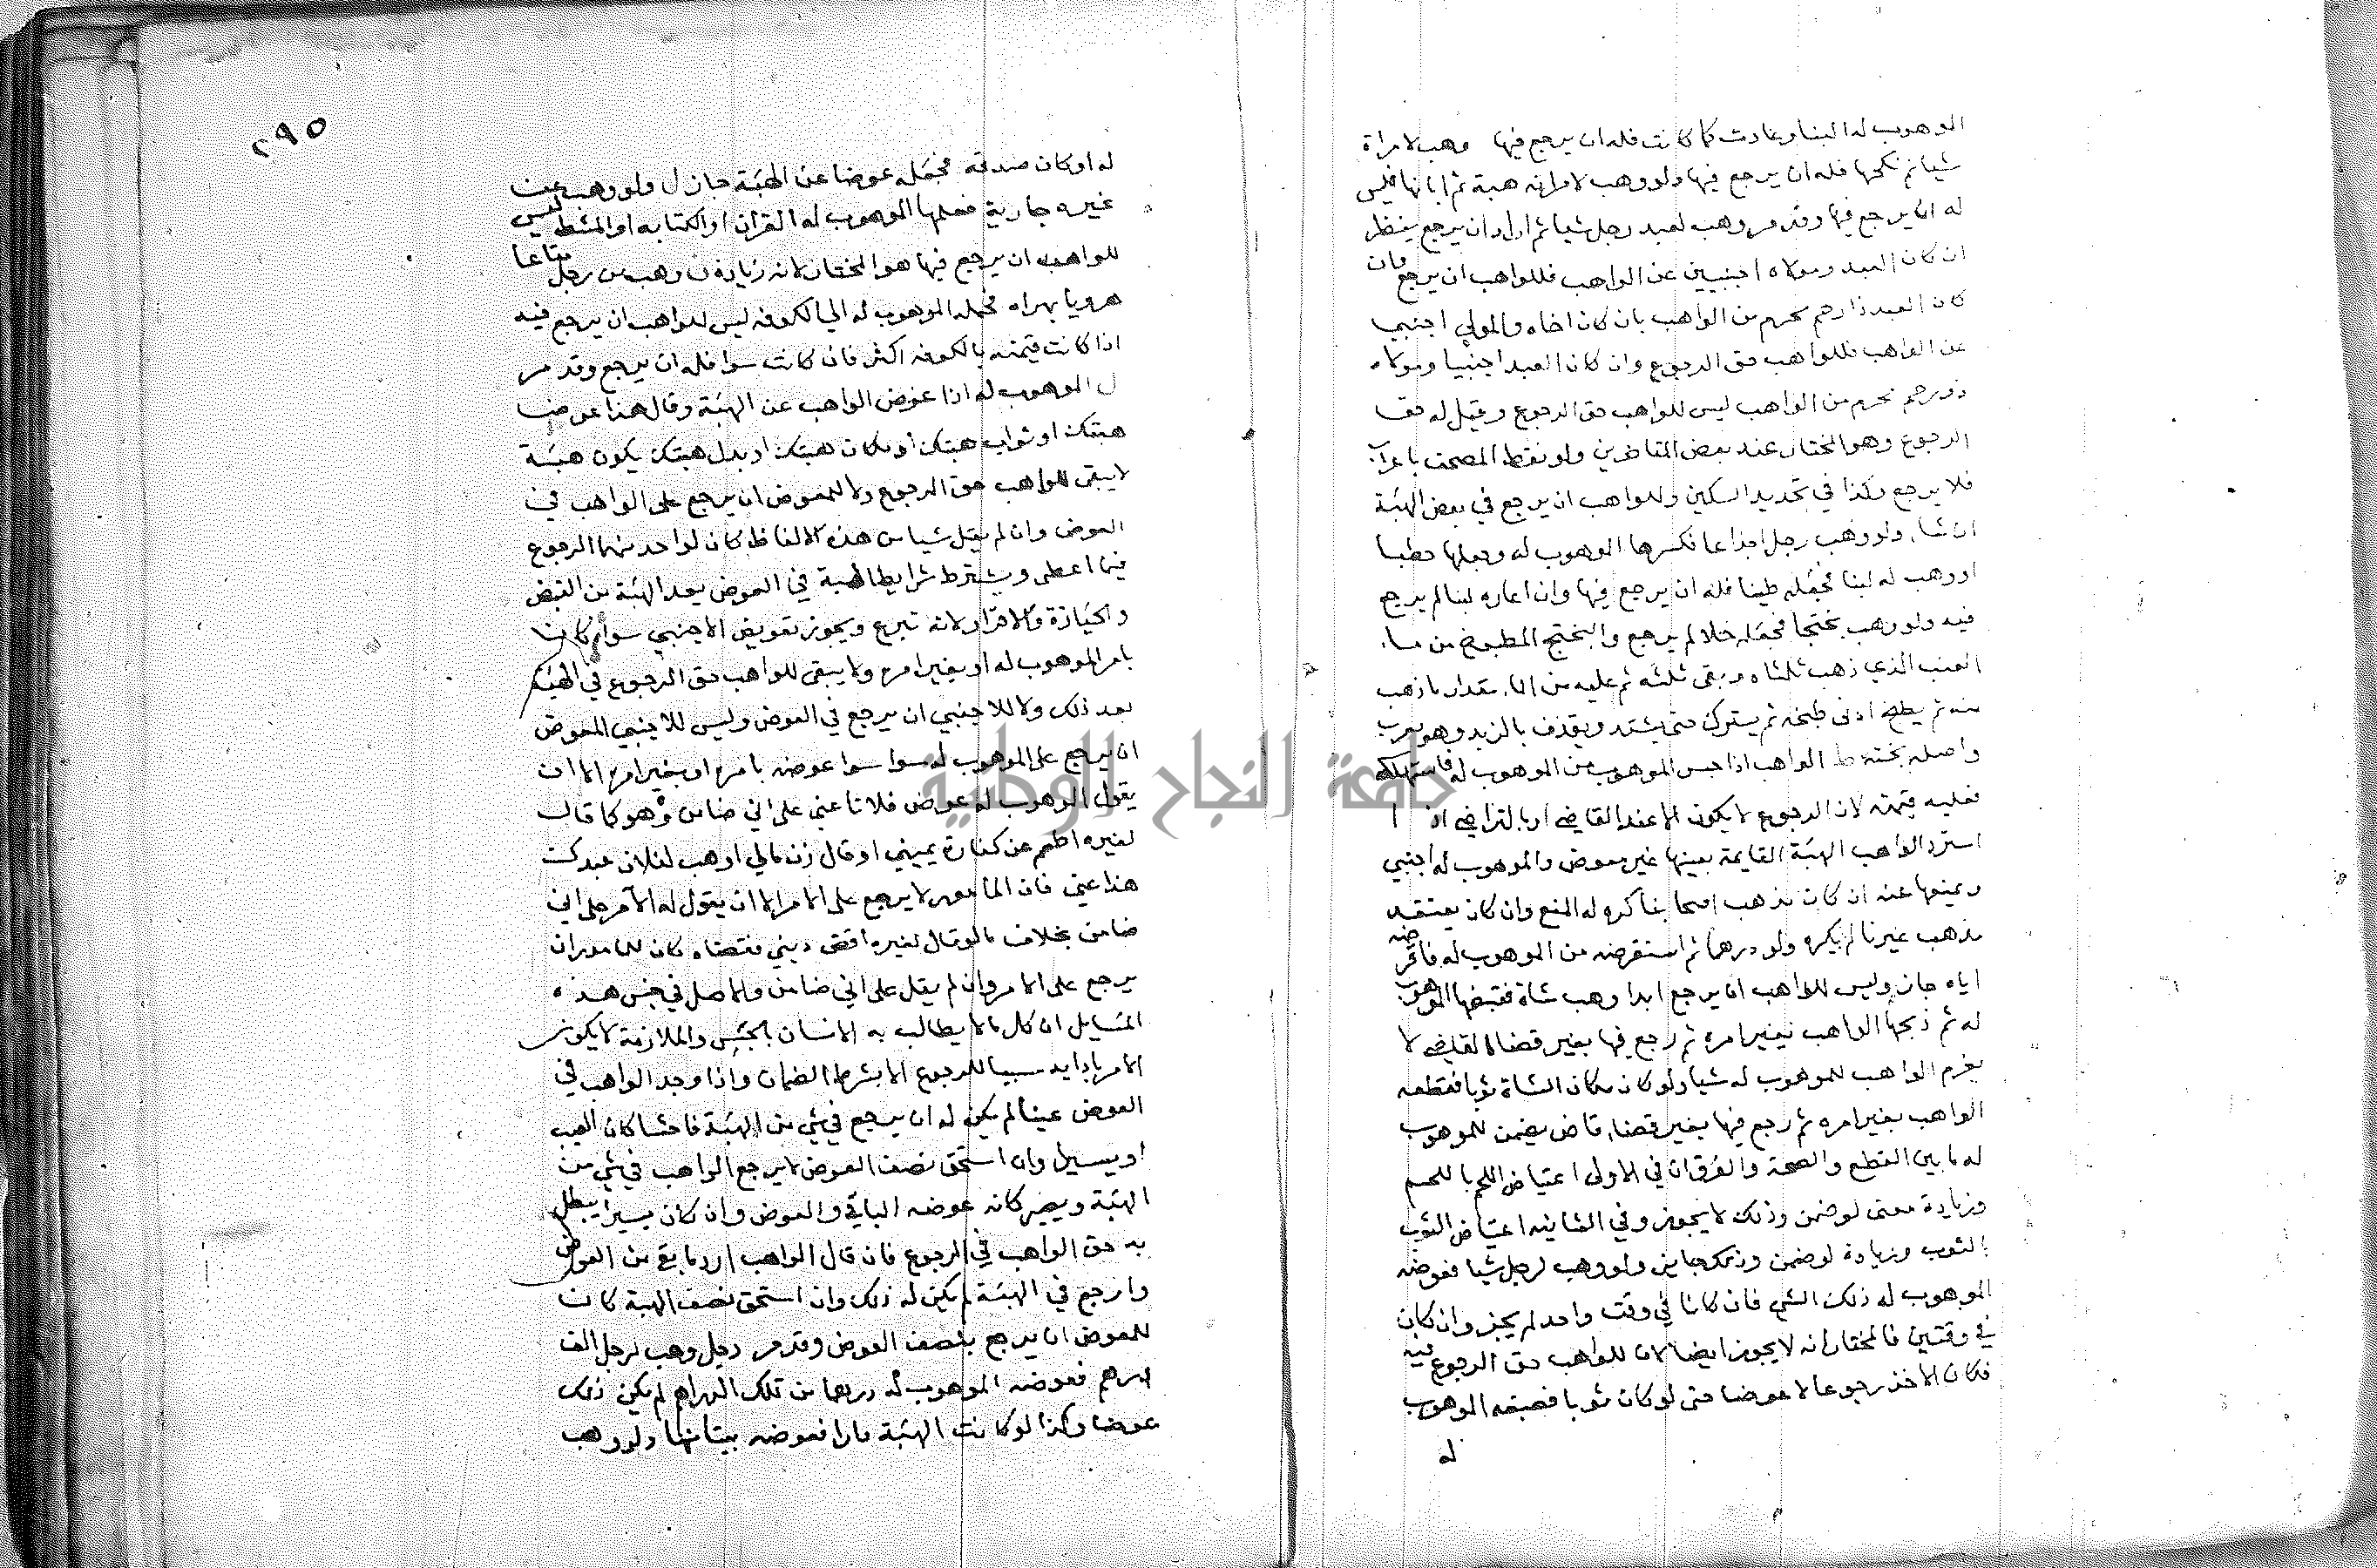 الموهوب له البناء وعادت كما كانت فله ان يرجع فيها وهب لامراة
شيا ثم نكحها فله ان يرجع فيها ولو وهب لامراته هبة ثم ابانها فليس
له ان يرجع فيها وقد مر وهب لعبد رجل شيا ثم اراد ان يرجع ينظر
ان كان العبد ومولاه اجنبيين عن الواهب فللواهب ان يرجع فان
كان العبد ذا رحم محرم من الواهب بان كان اخاه والمولى اجنبي
عن الواهب فللواهب حق الرجوع وان كان العبد اجنبيا ومولاه
ذو رحم محرم من الواهب ليس للواهب حق الرجوع وقيل له حق
الرجوع وهو المختار عند بعض المتاخرين ولو نقط المصحف باعراب
فلا يرجع وكذا في تحديد السكين وللواهب ان يرجع في بعض الهبة
ان شاء ولو وهب رجل اجذاعا فكسرها الموهوب له وجعلها حطبا
او وهب له لبنا فجعله طينا فله ان يرجع فيها وان اعاده لبنا لم يرجع
فيه ولو وهب بختجا فجعله خلا لم يرجع والبختج المطبوخ من ماء
العنب الذي ذهب ثلثاه وبقى ثلثه ثم عليه من الماء مقدار ما ذهب
منه ثم يطبخ ادنى طبخة ثم يترك حتى يشتد ويقذف بالزبد وهو معرب
واصله بخته ط الواهب اذا حبس الموهوب من الموهوب له فاستهلكه
فعليه قيمته لان الرجوع لا يكون الا عند القاضي او بالتراضي اذا
استرد الواهب الهبة القايمة بعينها غير معوض والموهوب له اجنبي
ومنعها عنه ان كان مذهب اصحابنا كره له المنع وان كان يعتقد
مذهب غيرنا لم يكره ولو درهما ثم استقرضه من الموهوب له فاقرضه
اياه جاز وليس للواهب ان يرجع ابدا وهب شاة فقبضها الموهوب
له ثم ذبحها الواهب بغير امره ثم رجع فيها بغير قضاء القاضي لا
يغرم الواهب للموهوب له شيا ولو كان مكان الشاة ثوبا فقطعه
الواهب بغير امره ثم رجع فيها بغير قضاء قاض يضمن للموهوب
له ما بين القطع والصحة والفرق ان في الاولى اعتياض اللحم باللحم
وزيادة معنى لو ضمن وذلك لا يجوز وفي الثانيه اعتياض الثوب
بالثوب وزيادة لو ضمن وذلك جايز ولو وهب لرجل شيا فعوضه
الموهوب له ذلك الشي فان كانا في وقت واحد لم يجز وان كان
في وقتين فالمختار انه لا يجوز ايضا لان للواهب حق الرجوع فيه
فكان الاخذ رجوعا لا عوضا حتى لو كان ثوبا فصبغه الموهوب
له
٢٩٥
له او كان صدقة فجعله عوضا عن الهبة جاز ل ولو وهب عن
غيره جارية فعلمها الموهوب له القران او الكتابه او المشط ليس
للواهب ان يرجع فيها هو المختار لانه زيادة ن وهب من رجل متاعا
هرويا بهراه فحمله الموهوب له الى الكوفه ليس للواهب ان يرجع فيه
اذا كانت قيمته بالكوفه اكثر فان كانت سوا فله ان يرجع وقد مر
ل الموهوب له اذا عوض الواهب عن الهبة وقال هذا عوض
هبتك او ثواب هبتك او مكان هبتك او بدل هبتك يكون هبة
لا يبقى للواهب حق الرجوع ولا للمعوض ان يرجع على الواهب في
العوض وان لم يقل شيا من هذه الالفاظ كان لواحد منهما الرجوع
فيما اعطى ويشترط شرايط الهبة في العوض بعد الهبة من القبض
والحيازة والافراد لانه تبرع ويجوز تعويض الاجنبي سواء كان
بامر الموهوب له او بغير امره ولا يبقى للواهب حق الرجوع في الهبة
بعد ذلك ولا للاجنبي ان يرجع في العوض وليس للاجنبي المعوض
ان يرجع على الموهوب له سوا سوا عوضه بامره او بغير امره الا ان
يقول الموهوب له عوض فلانا عني على اني ضامن وهو كما قال
لغيره اطعم عن كفارة يميني او قال زن مالي او هب لفلان عبدك
هذا عني فان المامور لا يرجع على الامر الا ان يقول له الآمر على اني
ضامن بخلاف ما لو قال لغيره اقض ديني فقضاه كان للمامور ان
يرجع على الامر وان لم يقل على اني ضامن والاصل في جنس هذه
المسايل ان كل ما لا يطالب به الانسان بالحبس والملازمة لا يكون
الامر بادايه سببا للرجوع الا بشرط الضمان واذا وجد الواهب في
العوض عيبا لم يكن له ان يرجع في شي من الهبة فاحشا كان العيب
او يسيرا وان استحق نصف العوض لا يرجع الواهب في شي من
الهبة ويصير كانه عوضه الباقي والعوض وان كان يسيرا يبطل
به حق الواهب في الرجوع فان قال الواهب ارد ما بقي من العوض
وارجع في الهبة لم يكن له ذلك وان استحق نصف الهبة كان
للمعوض ان يرجع بنصف العوض وقد مر رجل وهب لرجل الف
درهم فعوضه الموهوب له درهما من تلك الدراهم لم يكن ذلك
عوضا وكذا لو كانت الهبة دارا فعوضه بيتا منها ولو وهب
جامعة النجاح الوطنية